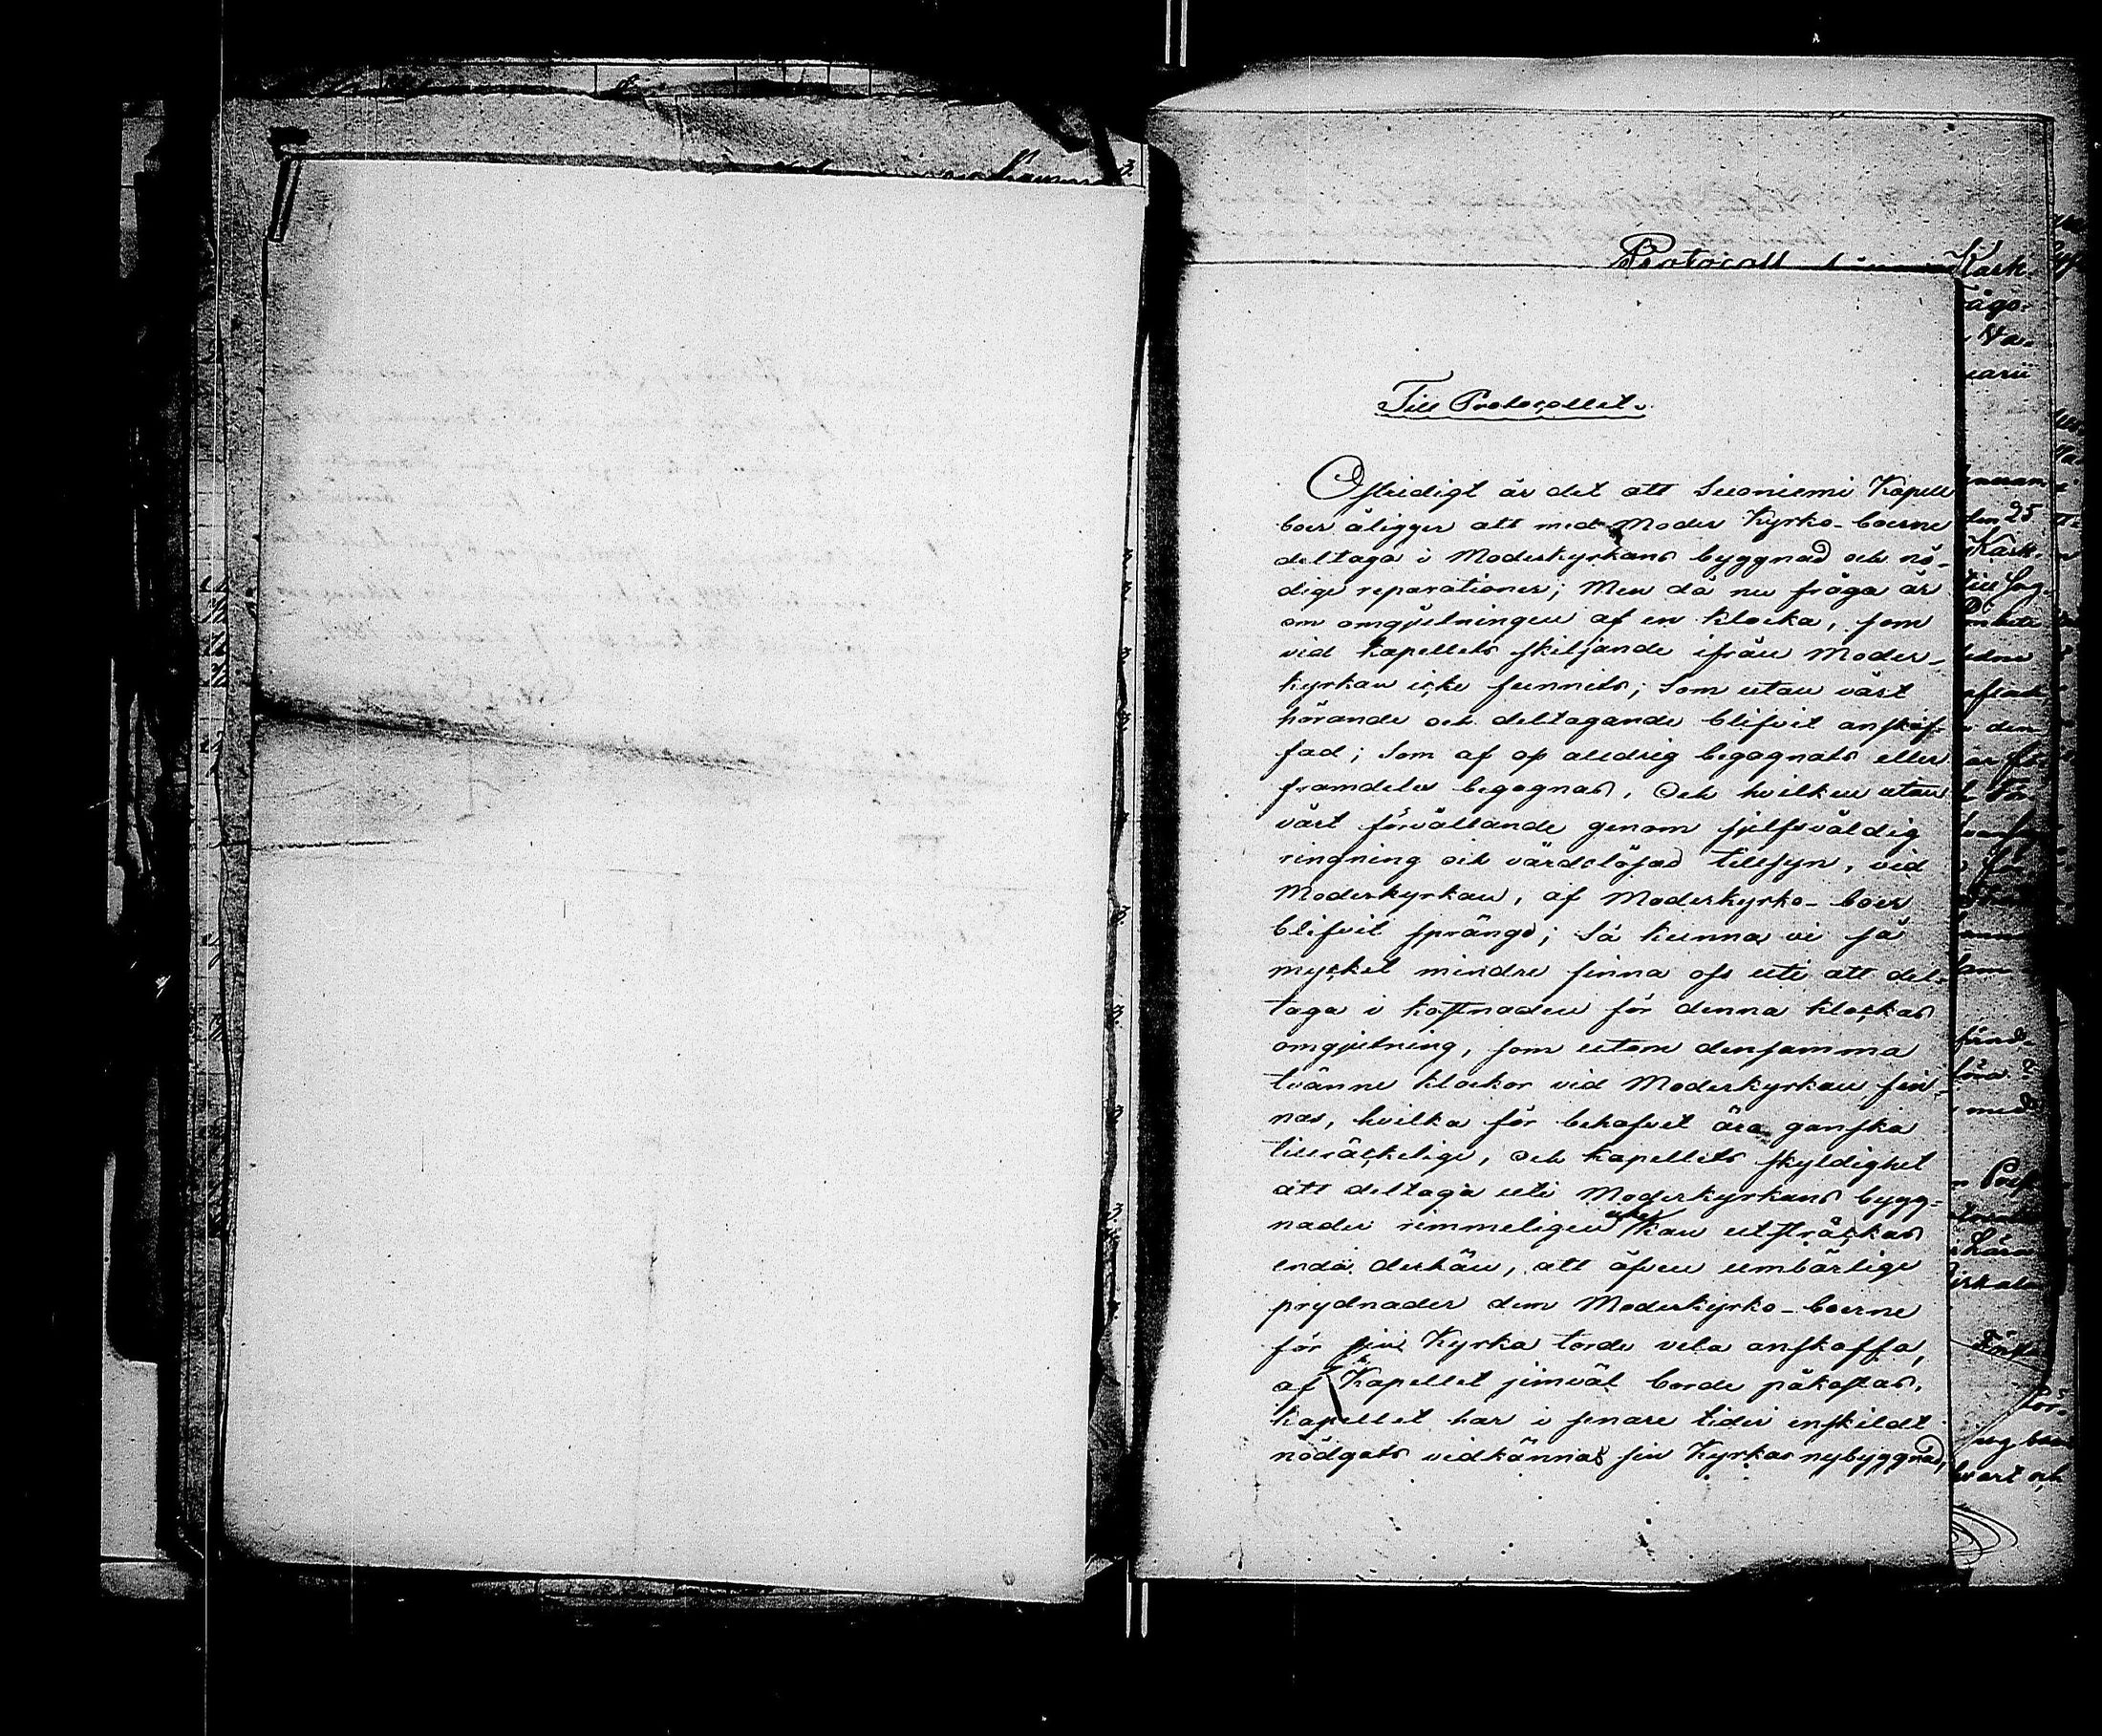 Protocoll
Till Protocollet.
Ostridigt är det att Suoniemi Kapell
boer åligger att med Moder Kyrko-boerne
deltaga i Moderkyrkans byggnad och nö-
dige reparationer; Men då nu fråga är
om omgjutningen af en klocka, som
vid kapellets skiljande ifrån Moder-
kyrkan icke funnits; Som utan vårt
hörande och deltagande blifvit anskaf-
fad; Som af oss aldrig begagnats eller
framdeles begagnas, Och hvilken utan
vårt förvållande genom sjelfsvåldig
ringning och vårdslösad tillsyn, vid
Moderkyrkan, af Moderkyrko-boer
blifvit sprängd; Så kunna vi så
mycket mindre finna oss uti att del-
taga i kostnaden för denna klockas
omgjutning, som utom densamma
tvänne klockor vid Moderkyrkan fin-
nas, hvilka för behofvet äro ganska
tillräckelige, Och Kapellets skyldighet
att deltaga uti Moderkyrkans bygg-
nader rimmeligen icke kan utsträckas
ända derhän, att äfven umbärlige
prydnader dem Moderkyrko-boerne
för sin Kyrka torde vela anskaffa,
af Kapellet jemväl borde påkostas.
Kapellet har i senare tider enskildt
nödgats vidkännas sin Kyrkas nybyggnad,